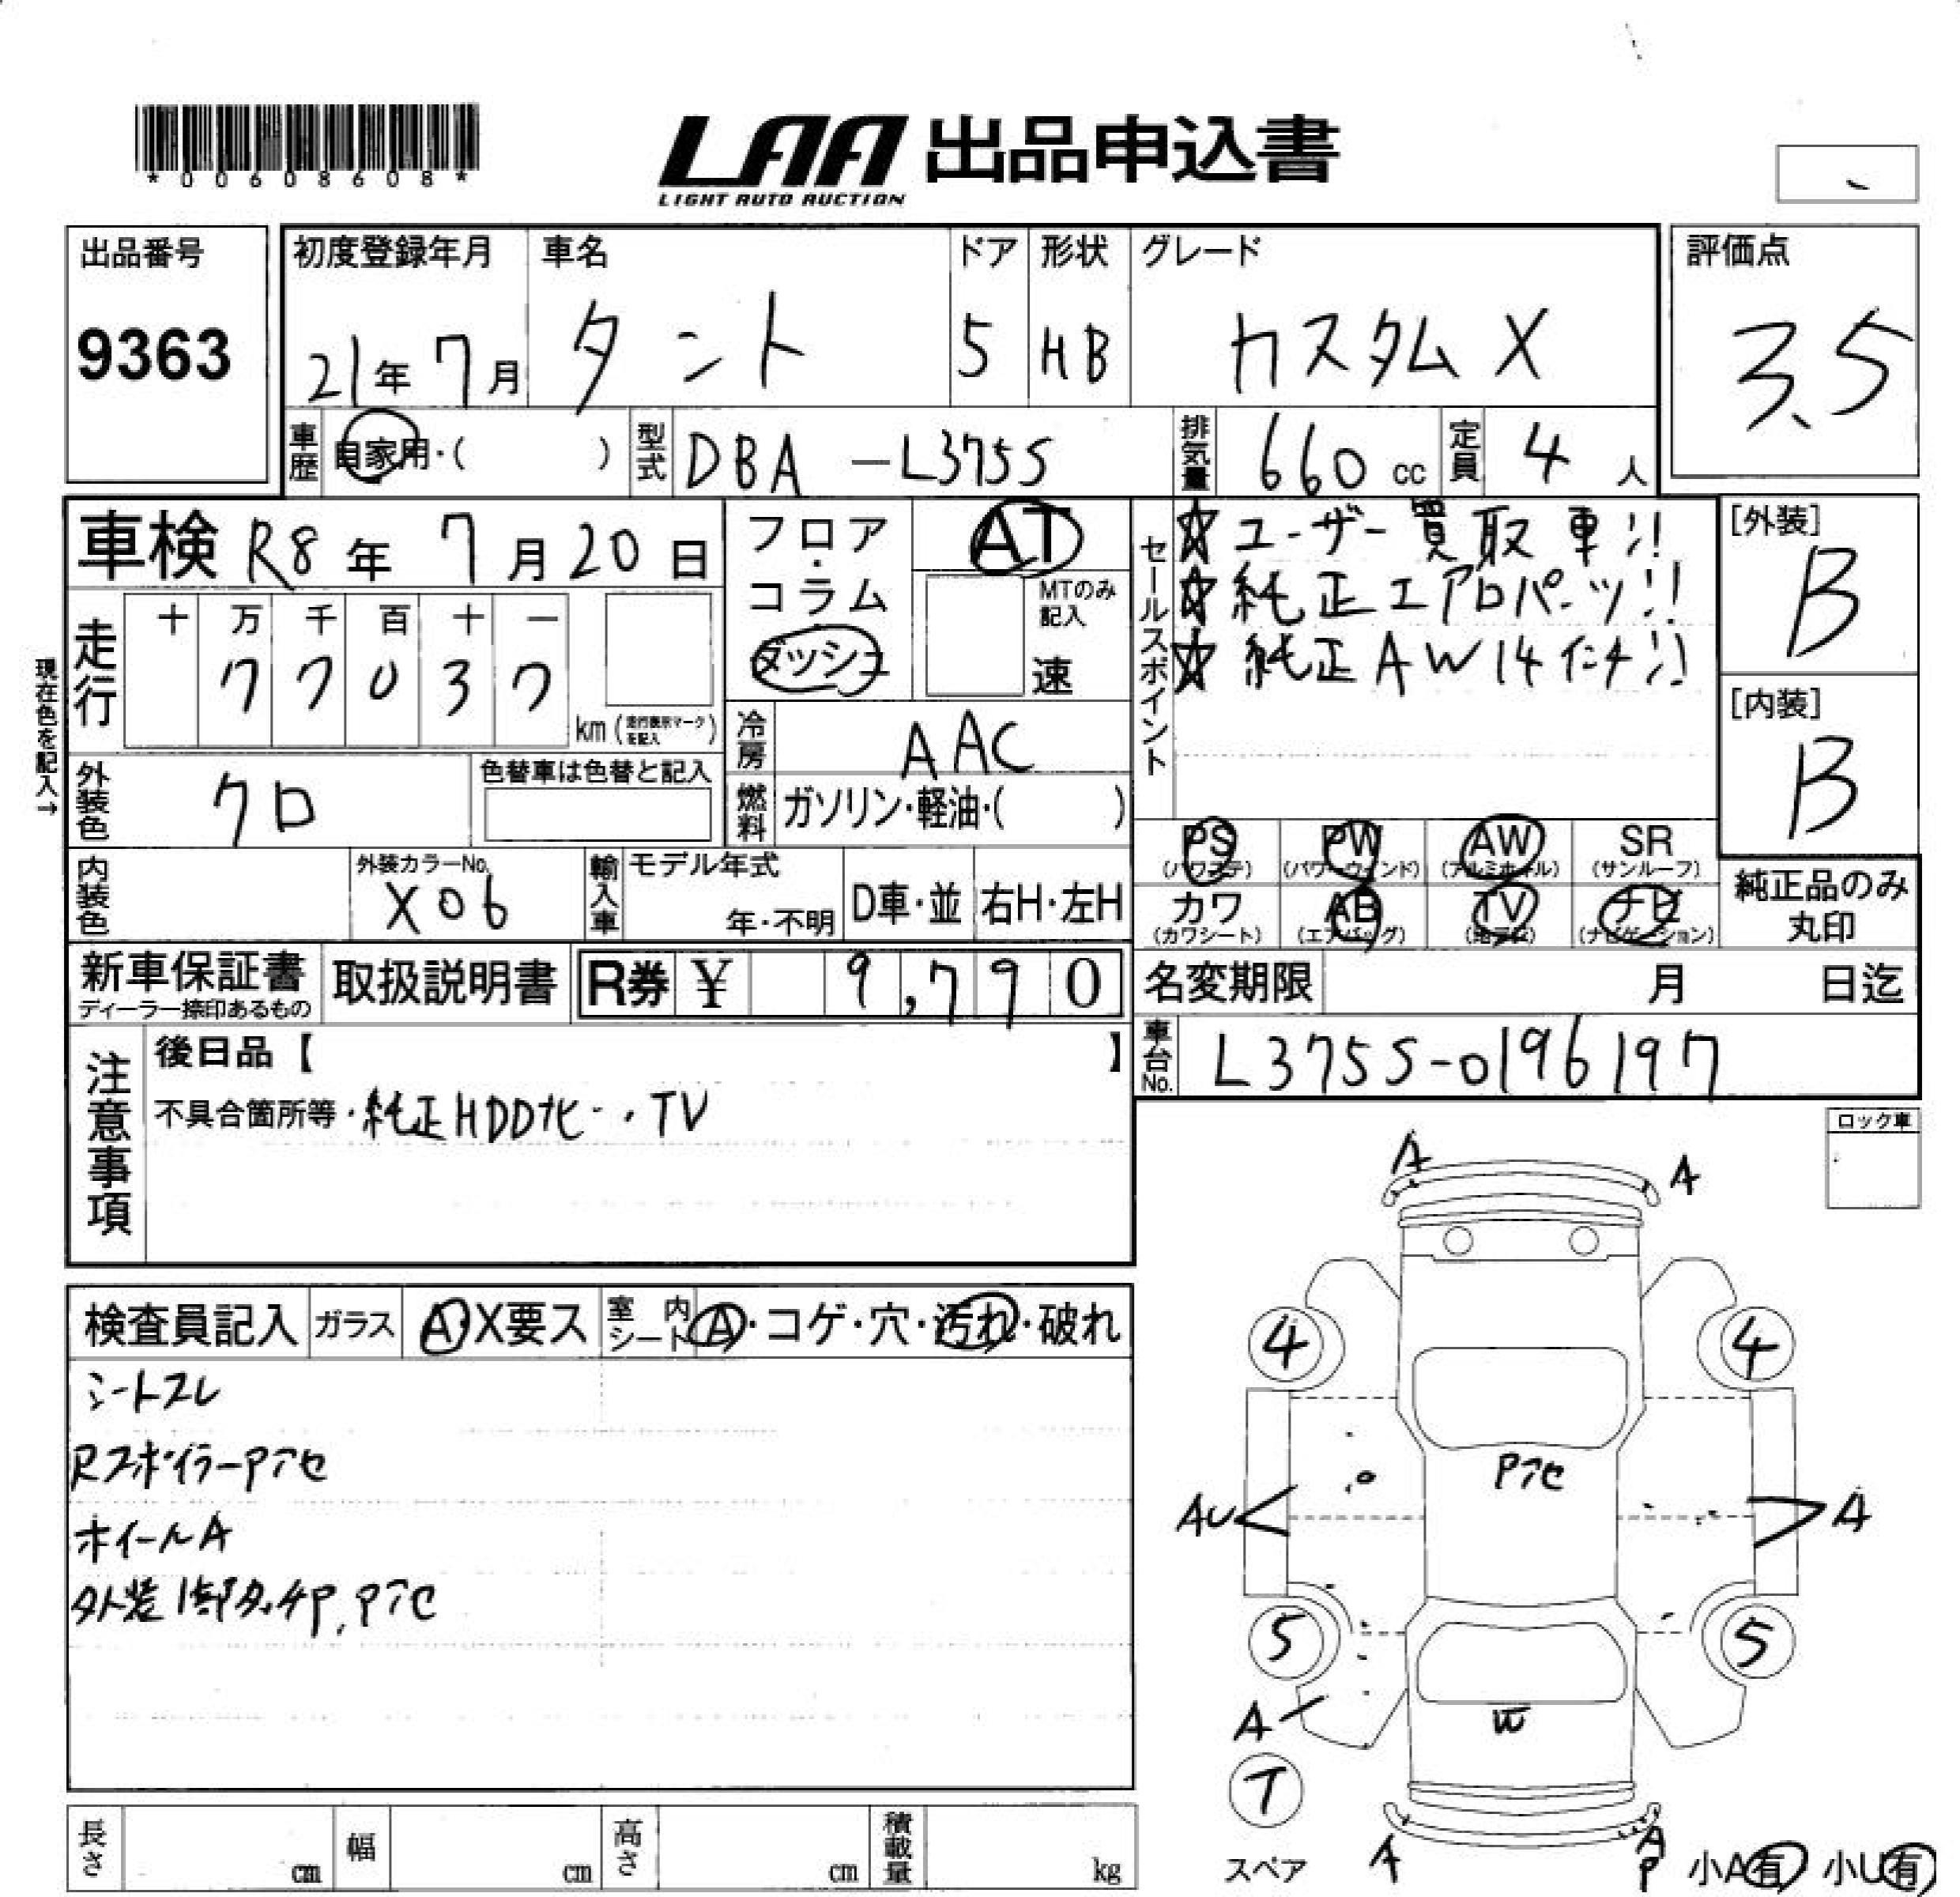 *00608608*
LAA 出品申込書
LIGHT AUTO AUCTION
出品番号
9363
初度登録年月
21年 7月
車名
タント
ドア
5
形状
HB
グレード
カスタム X
評価点
3.5
車歴 自家用・( )
型式 DBA -L375S
排気量 660 cc
定員 4 人
車検 R8年 7月 20日
フロア・コラム
ダッシュ
AT
MTのみ記入
速
セールスポイント
☆ユーザー買取車!!
☆純正エアロパーツ!!
☆純正AW14インチ!!
[外装]
B
[内装]
B
現在色を記入→
走行
十 万 千 百 十 一
7 7 0 3 7
km (走行表示マークを記入)
冷房 AAC
外装色 クロ
色替車は色替と記入
燃料 ガソリン・軽油・( )
内装色
外装カラーNo.
X06
輸入車 モデル年式
年・不明
D車・並
右H・左H
PS (パワステ)
PW (パワーウィンド)
AW (アルミホイル)
SR (サンルーフ)
カワ (カワシート)
AB (エアバッグ)
TV
ナビ (ナビゲーション)
純正品のみ
丸印
新車保証書
ディーラー捺印あるもの
取扱説明書
R券 ¥ 9,790
名変期限 月 日迄
車台No. L375S-0196197
注意事項
後日品【 】
不具合箇所等・純正HDDナビ・・TV
ロック車
検査員記入
ガラス A・X要ス
室内シート A・コゲ・穴・汚れ・破れ
シートスレ
Rスポイラー Pアセ
ホイールA
外装1部タッチP、Pアセ
A
A
4
4
Pアセ
AU
A
5
5
A
W
T
スペア
A
A
P
小A有 小U有
長さ cm
幅 cm
高さ cm
積載量 kg